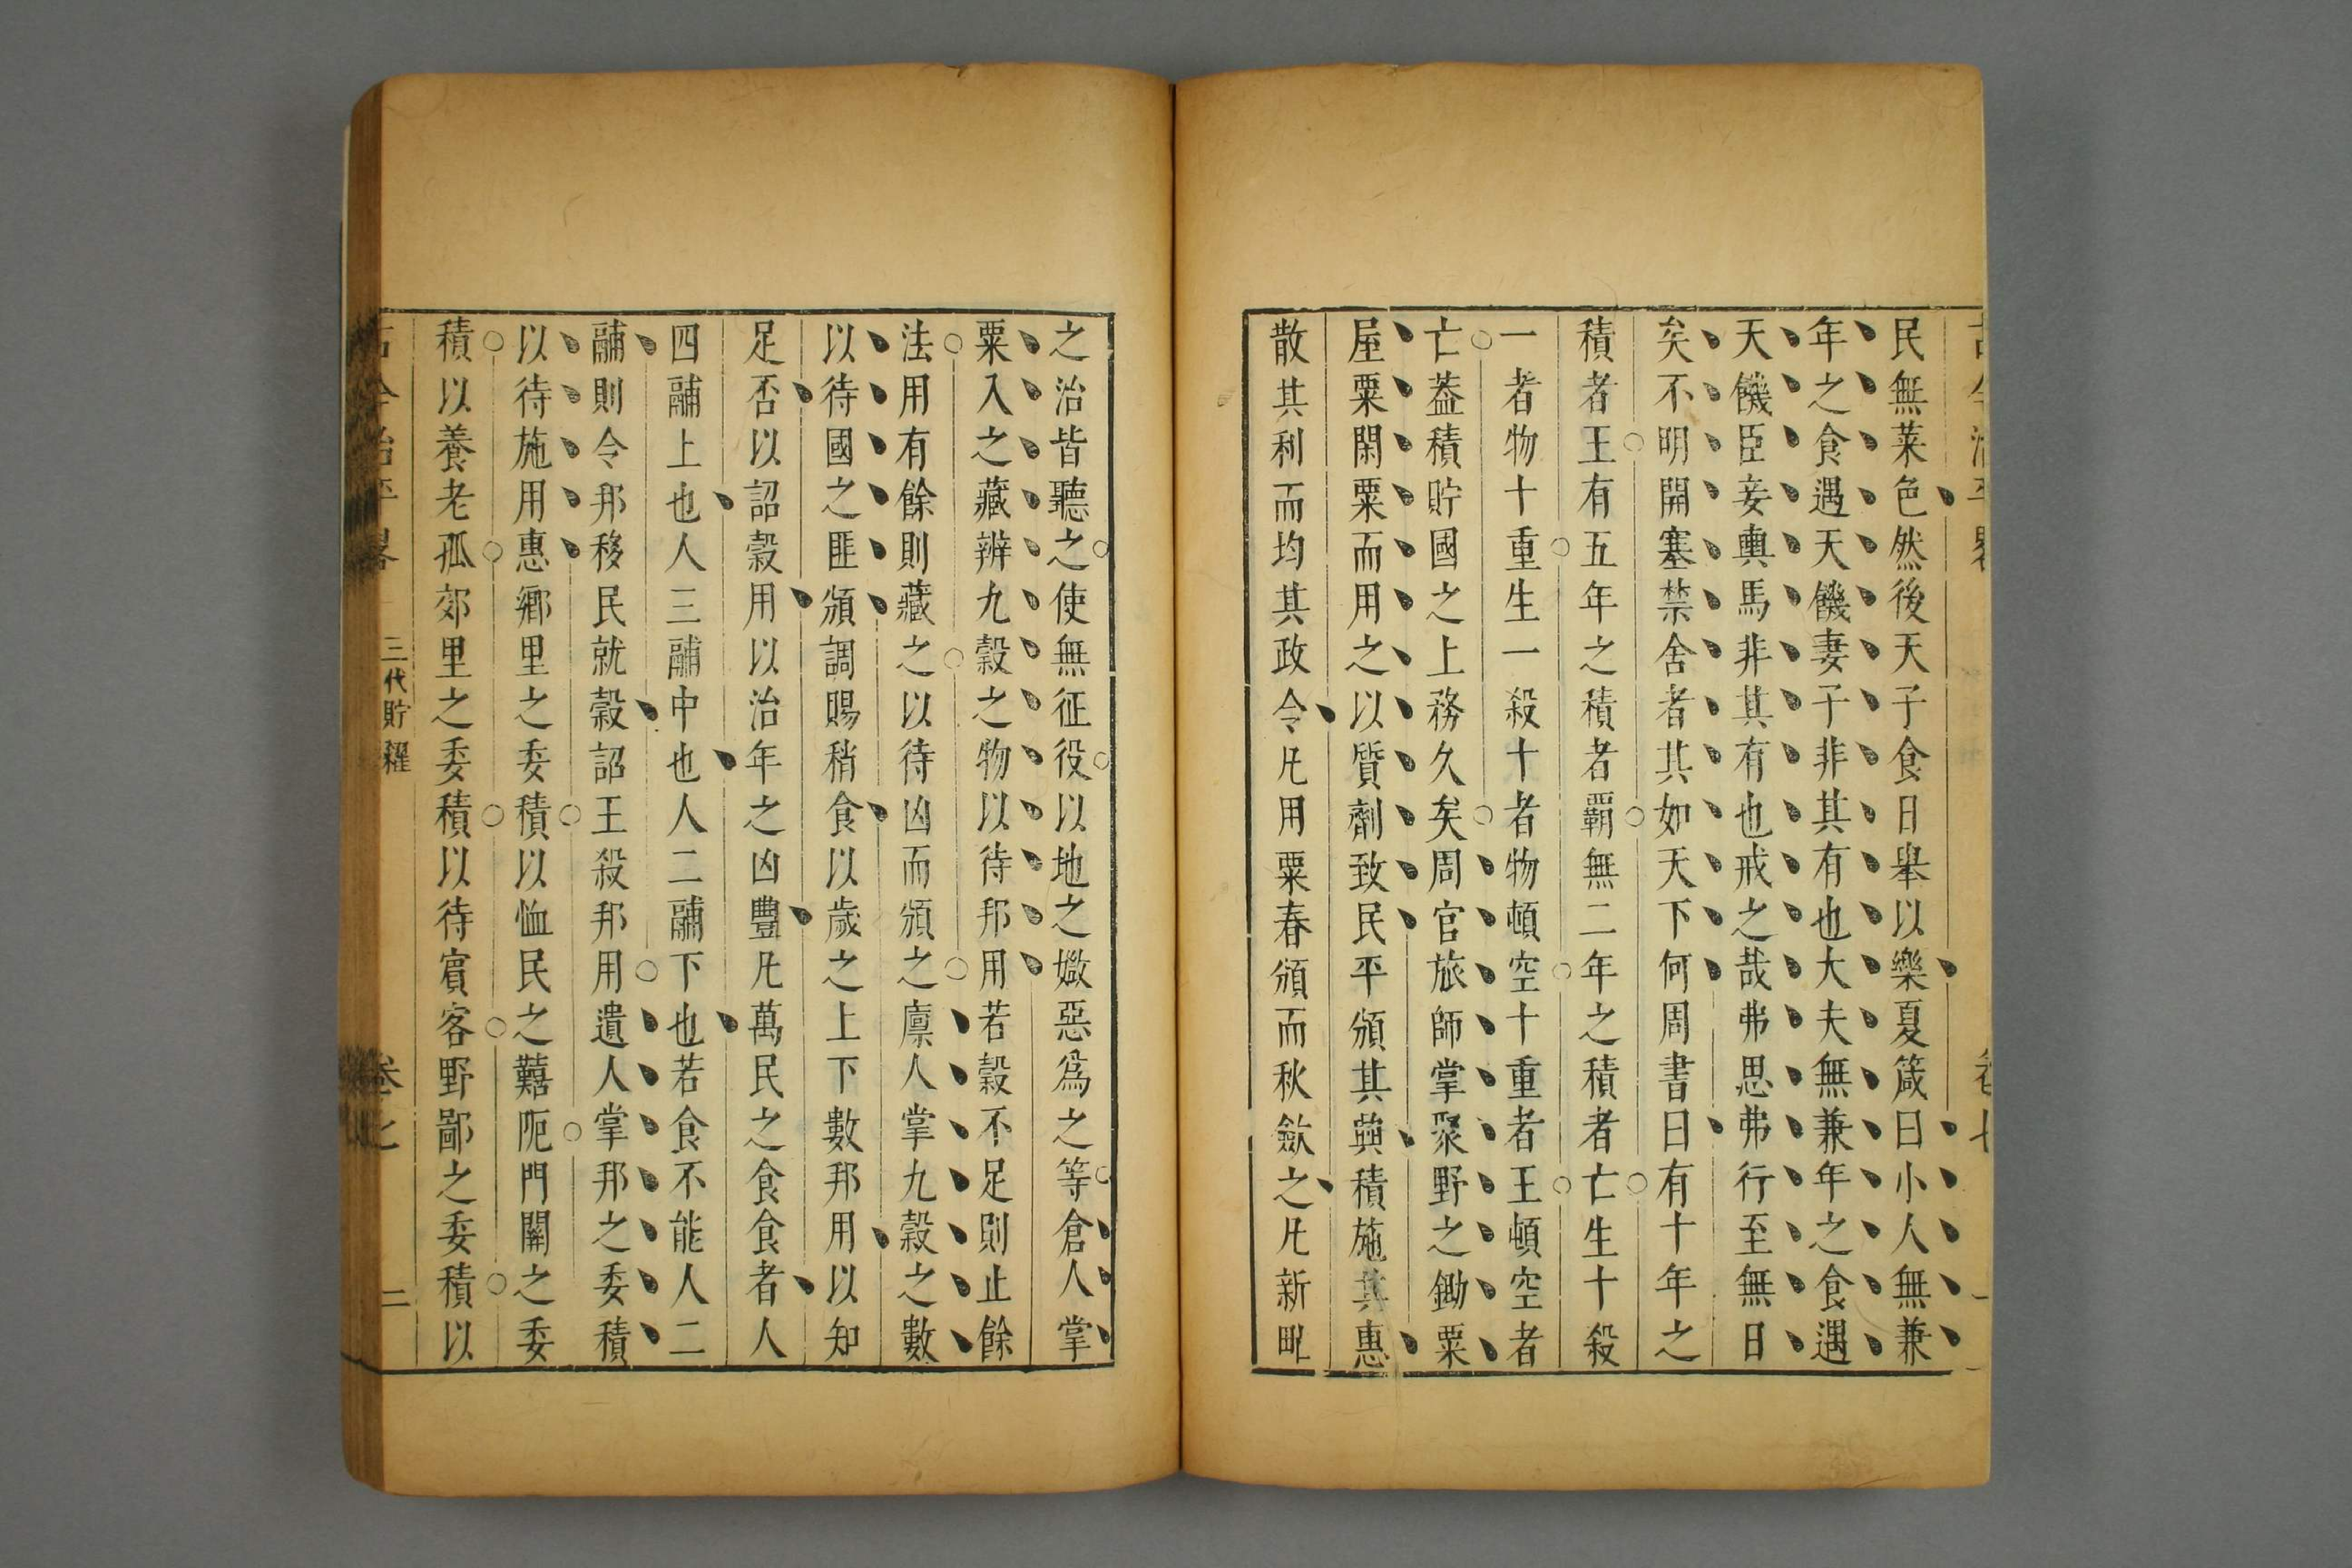 民無菜色然後天子食日舉以樂夏箴曰小人無兼
年之食遇天饑妻子非其有也大夫無兼年之食遇
天饑臣妾輿馬非其有也戒之哉弗思弗行至無日
矣不明開塞禁舍者其如天下何周書曰有十年之
積者王有五年之積者霸無二年之積者亡生十殺
一者物十重生一殺十者物頓空十重者王頓空者
亡蓋積貯國之上務久矣周官旅師掌聚野之鋤粟
屋粟閑粟而用之以質劑致民平頒其興積施其惠
散其利而均其政令凡用粟春頒而秋斂之凡新甿
之治皆聽之使無征役以地之媺惡爲之等倉人掌
粟入之藏辨九穀之物以待邦用若穀不足則止餘
法用有餘則藏之以待凶而頒之廩人掌九穀之數
以待國之匪頒調賜稍食以歲之上下數邦用以知
足否以詔穀用以治年之凶豐凡萬民之食食者人
四鬴上也人三鬴中也人二鬴下也若食不能人二
鬴則令邦移民就穀詔王殺邦用遺人掌邦之委積
以待施用惠鄉里之委積以恤民之囏阨門關之委
積以養老孤郊里之委積以待賓客野鄙之委積以
古今治平畧 三代貯糴 卷之 二